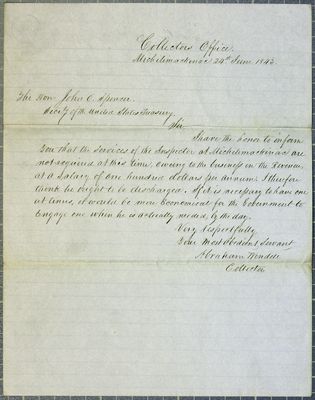 Collectors Office
Michilimackinac 24th June 1843.
The Hon John C. Spencer.
Secty of the United States Treasury.
Sir
I have the honor to inform
You that the services of the Inspector at Michilimackinac are
not required at this time, owing to the business in the Revenue,
at a Salary of one hundred dollars per annum. I therefore
think he ought to be discharged. If it is necessary to have one
at times, it would be more Economical for the Government to
Engage one when he is actually needed, by the day.
Very Respectfully
Your Most Obedient Servant
Abraham Wendell
Collector